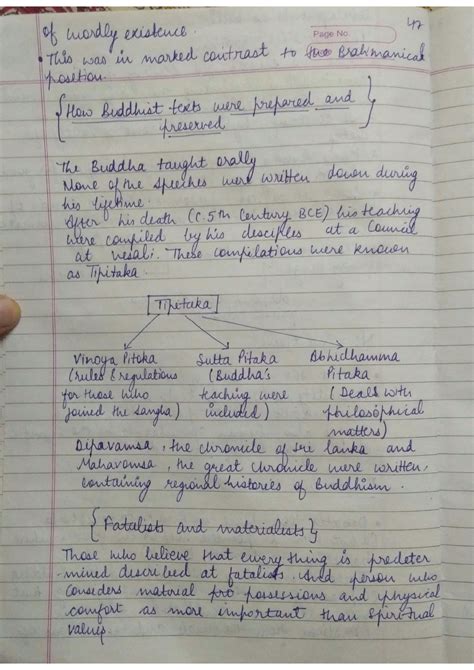 of wordly existence.
Page No.
47
• This was in marked contrast to the Brahmanical
position.
{ How Buddhist texts were prepared and
preserved }
The Buddha taught orally
None of the speeches were written down during
his lifetime.
After his death (C. 5th Century BCE) his teaching
were compiled by his desciples at a Council
at vesali. These compilations were known
as Tipitaka.
Tipitaka
Vinaya Pitaka Sutta Pitaka Abhidhamma
(rules & regulations (Buddha's Pitaka
for those who teaching were (Deals with
joined the Sangha) included) philosophical
matters)
Dipavamsa, the chronicle of Sri lanka and
Mahavamsa, the great chronicle were written,
containing regional histories of Buddhism.
{ Fatalists and materialists }
Those who believe that every thing is predeter
mined described at fatalists. And person who
considers material pro possessions and physical
comfort as more important than spiritual
values.